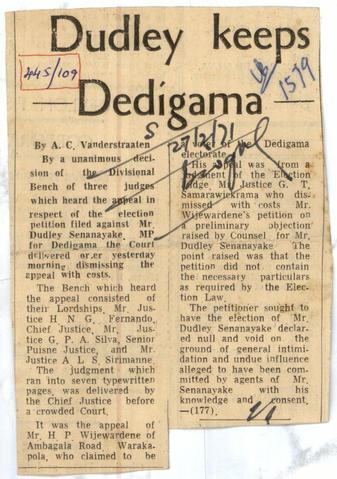 Dudley keeps
445/109
1579
— Dedigama —
S
27/2/71
By A. C. Vanderstraaten
By a unanimous deci-
sion of the Divisional
Bench of three judges
which heard the appeal in
respect of the election
petition filed against Mr.
Dudley Senanayake, MP
for Dedigama the Court
delivered order yesterday
morning dismissing the
appeal with costs.
The Bench which heard
the appeal consisted of
their Lordships, Mr. Jus-
tice H N G, Fernando,
Chief Justice, Mr, Jus-
tice G. P. A. Silva, Senior
Puisne Justice, and Mr.
Justice A L S. Sirimanne.
The judgment which
ran into seven typewritten
pages, was delivered by
the Chief Justice before
a crowded Court.
It was the appeal of
Mr. H. P. Wijewardene of
Ambagala Road, Waraka-
pola, who claimed to be
a voter of the Dedigama
electorate.
His appeal was from a
judgment of the Election
Judge, Mr. Justice G. T.
Samarawickrama who dis-
missed with costs Mr.
Wijewardene's petition on
a preliminary objection
raised by Counsel for Mr,
Dudley Senanayake The
point raised was that the
petition did not contain
the necessary particulars
as required by the Elec-
tion Law.
The petitioner sought to
have the election of Mr,
Dudley Senanayake declar-
ed null and void on the
ground of general intimi-
dation and undue influence
alleged to have been com-
mitted by agents of Mr,
Senanayake with his
knowledge and consent,
—(177).